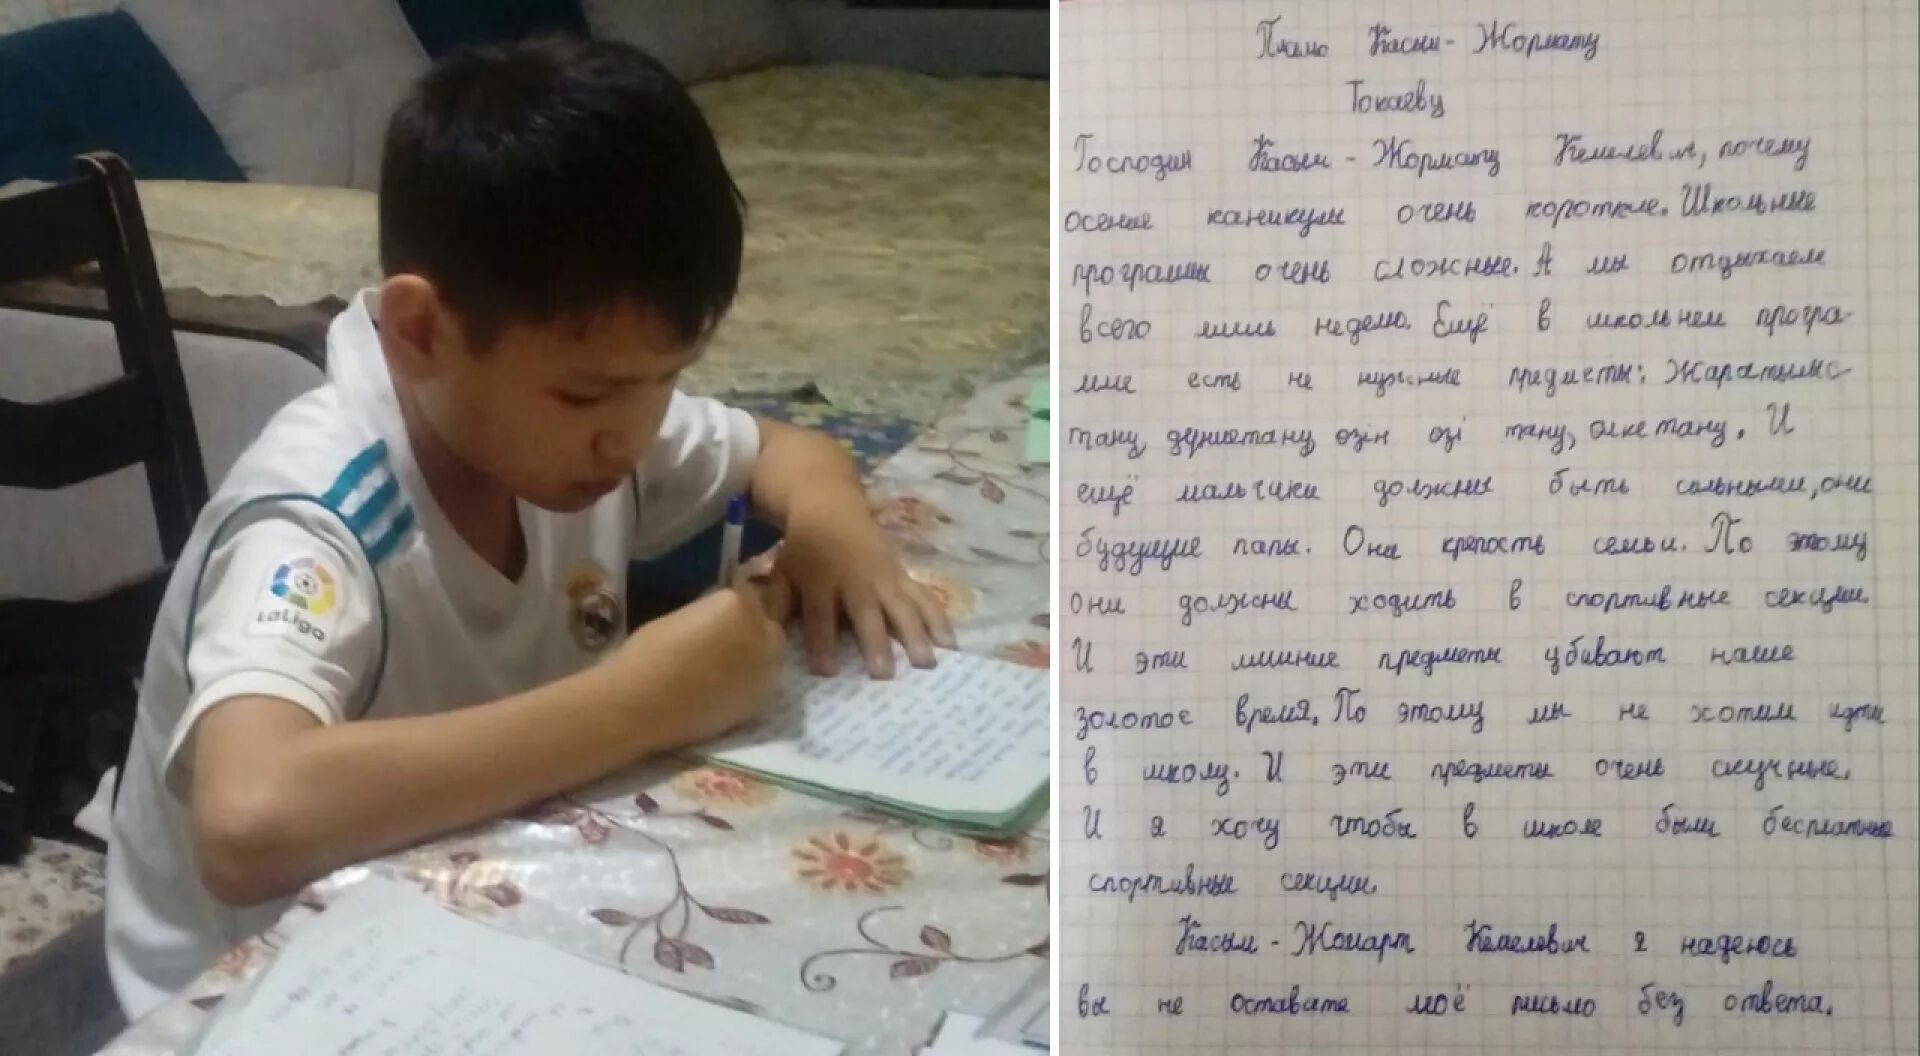 LaLiga
Письмо Касым - Жормату
Токаеву
Господин Касым - Жормату Кемелевич, почему
осение каникулы очень короткие. Школьные
програмы очень сложные. А мы отдыхаем
всего лишь неделю. Ещё в школьнем програ-
мме есть не нужные предметы: Жаратылыс-
тану, дуниетану, озін озі тану, олкетану. И
ещё мальчики должны быть сильными, они
будущие папы. Они крепость семьи. По этому
они должны ходить в спортивные секции.
И эти лишние предметы убивают наше
золотое время. По этому мы не хотим идти
в школу. И эти предметы очень скучные.
И я хочу чтобы в школе были бесплатные
спортивные секции.
Касым - Жомарт Кемелевич я надеюсь
вы не оставите моё письмо без ответа.